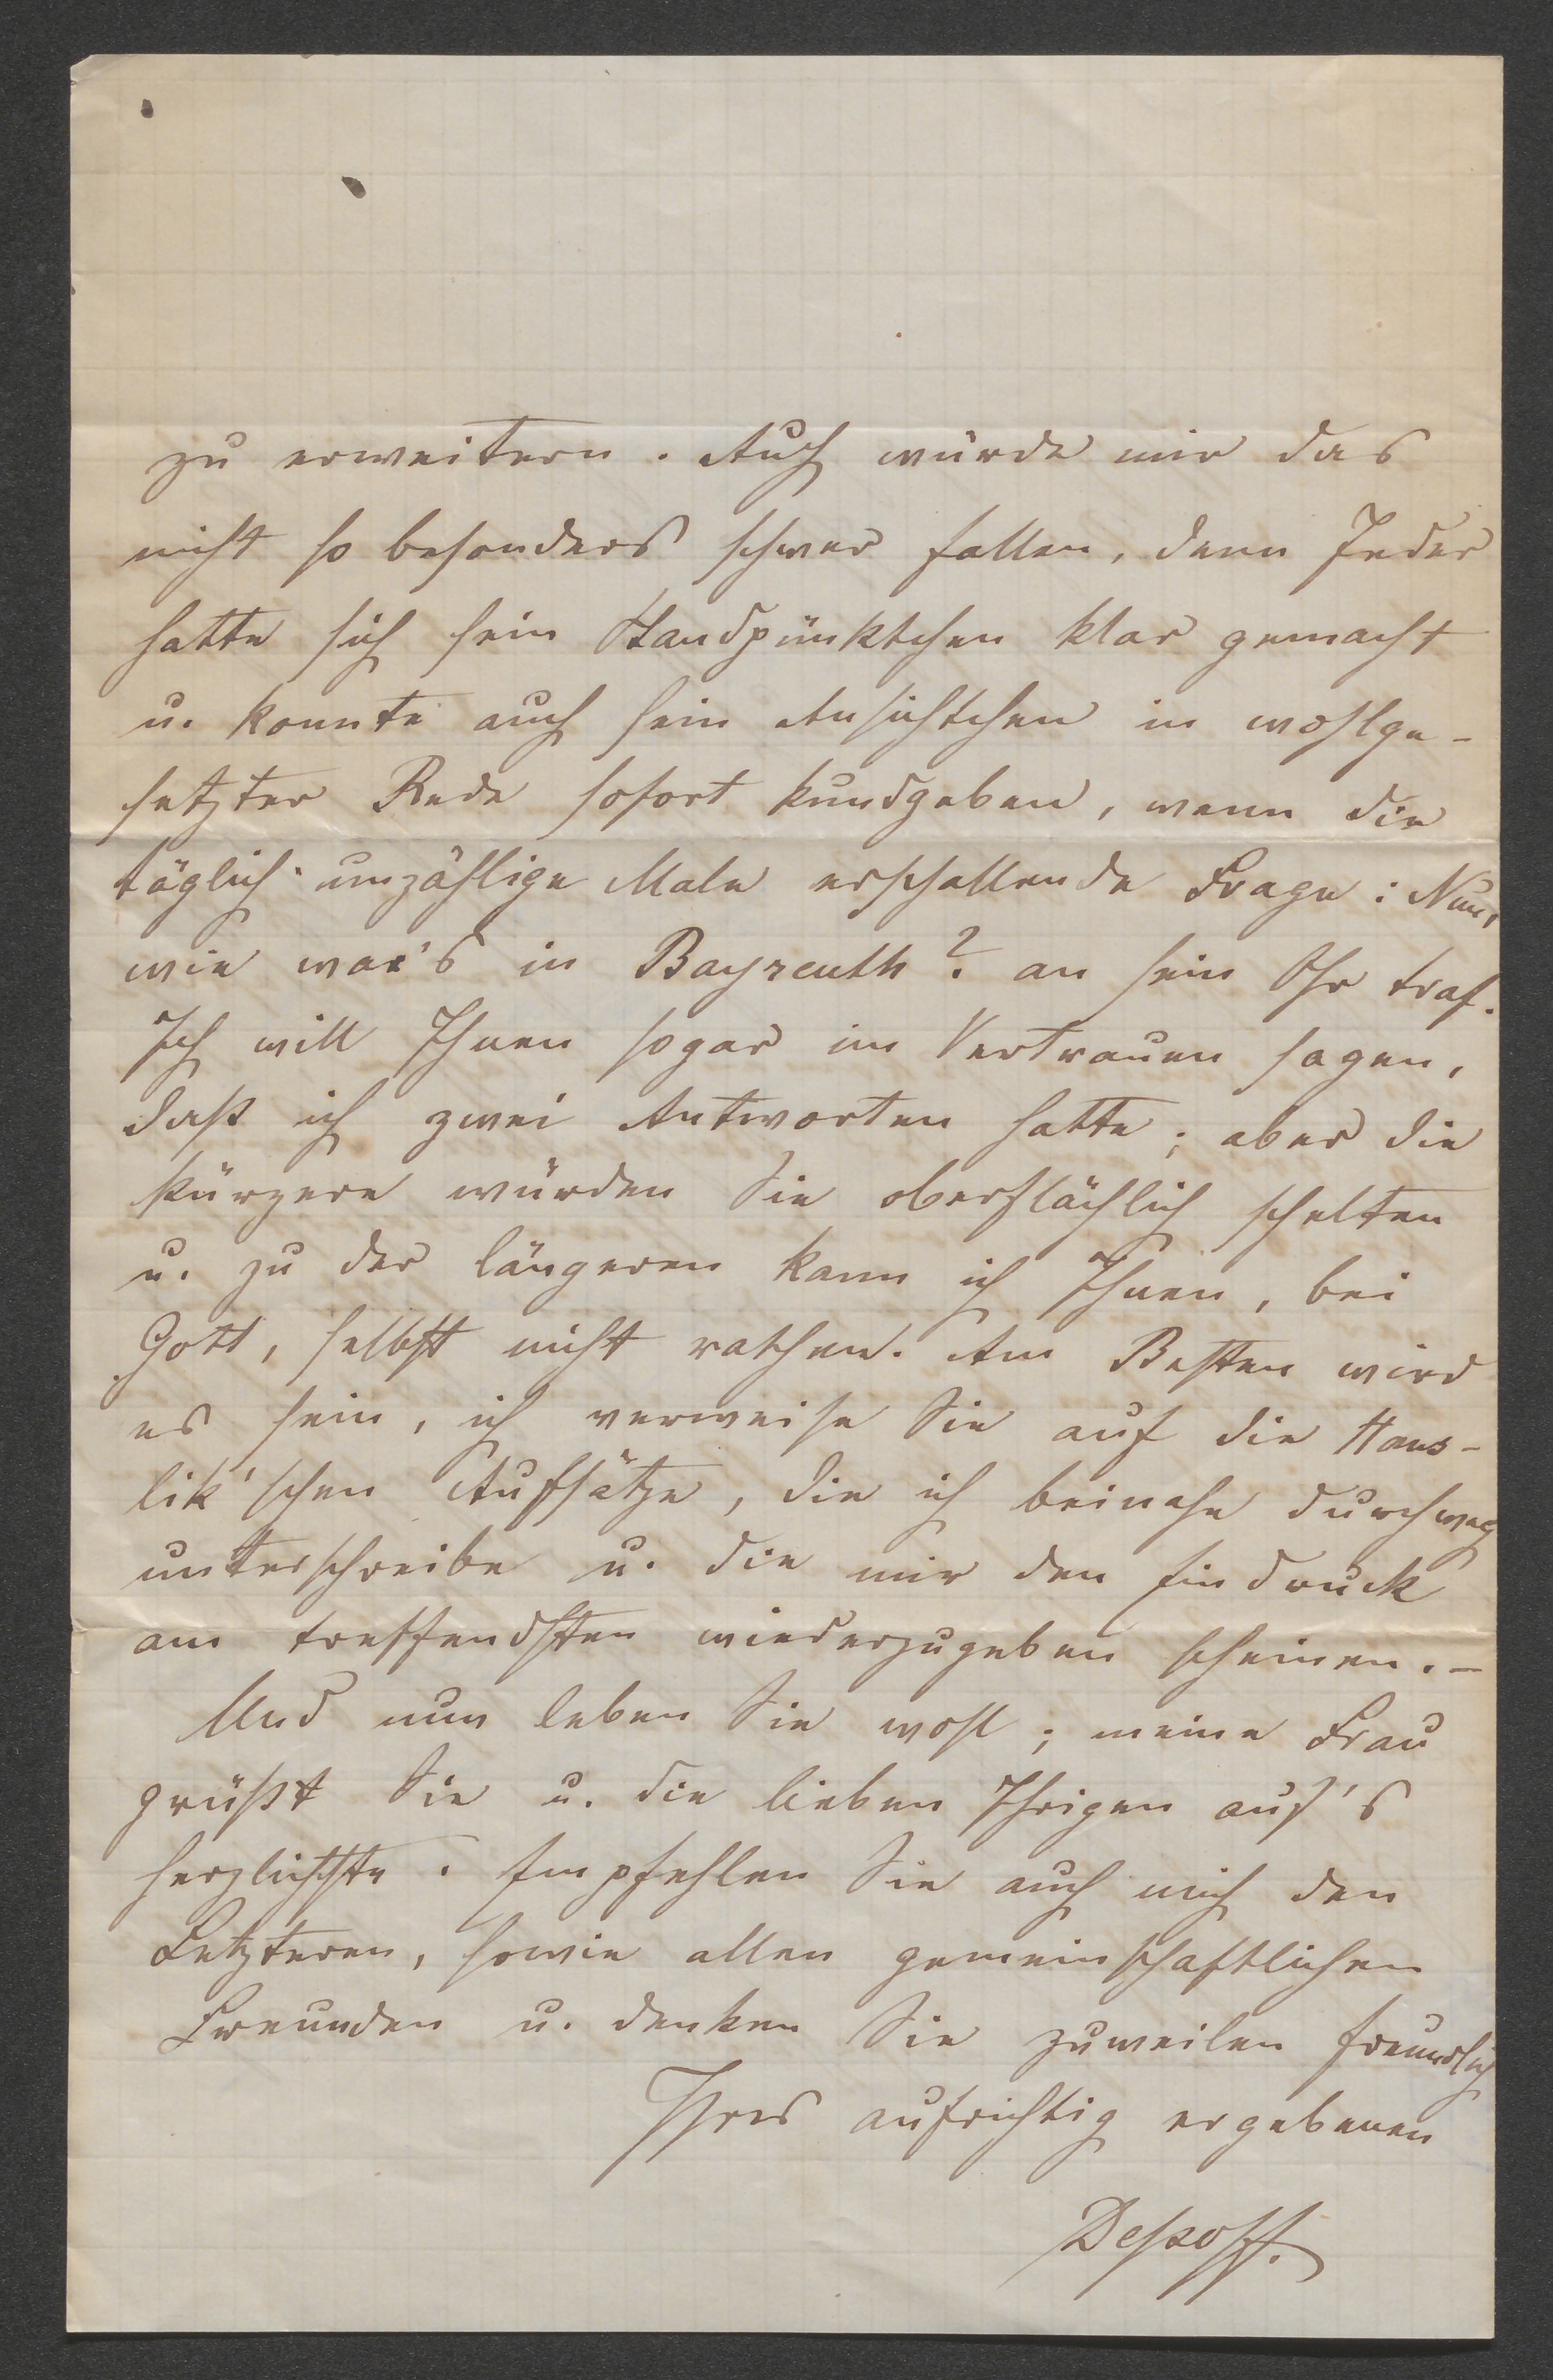 zu erweitern. Auch würde mir das
nicht so besonders schwer fallen, denn Jeder
hatte sich sein Standpünktchen klar gemacht
u. konnte auch sein Ansichtchen in wohlge-
setzter Rede sofort kundgeben, wenn die
täglich unzählige Male erschallende Frage: Nun,
wie war's in Bayreuth? an sein Ohr traf.
Ich will Ihnen sogar im Vertrauen sagen,
daß ich zwei Antworten hatte; aber die
kürzere würden Sie oberflächlich schelten
u. zu der längeren kann ich Ihnen, bei
Gott, selbst nicht rathen. Am Besten wird
es sein, ich verweise Sie auf die Hans-
lik'schen Aufsätze, die ich beinahe durchweg
unterschreibe u. die mir den Eindruck
am treffendsten wiederzugeben scheinen. –
Und nun leben Sie wohl; meine Frau
grüßt Sie u. die lieben Ihrigen auf's
herzlichste. Empfehlen Sie auch mich den
Letzteren, sowie allen gemeinschaftlichen
Freunden u. denken Sie zuweilen freundlich
Ihres aufrichtig ergebenen
Dessoff.